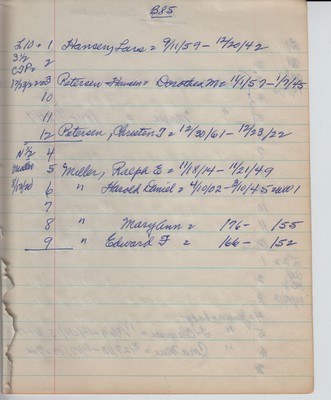 B85
L10 = 1 Hansen, Lars = 9/11/59 - 12/20/42
3/2 2
CSP= 3 Petersen Hansen = Dorothea M = 11/1/57 - 1/7/45
10
11
12 Petersen, Christen J = 12/30/61 - 12/23/22
N 1/2 4
5 Miller, Ralph E = 11/18/14 - 11/21/49
6 " Harold Daniel = 4/10/02 - 3/10/45 WW1
7
8 " Mary Ann = 176 - 155
9 " Edward F = 166 - 152